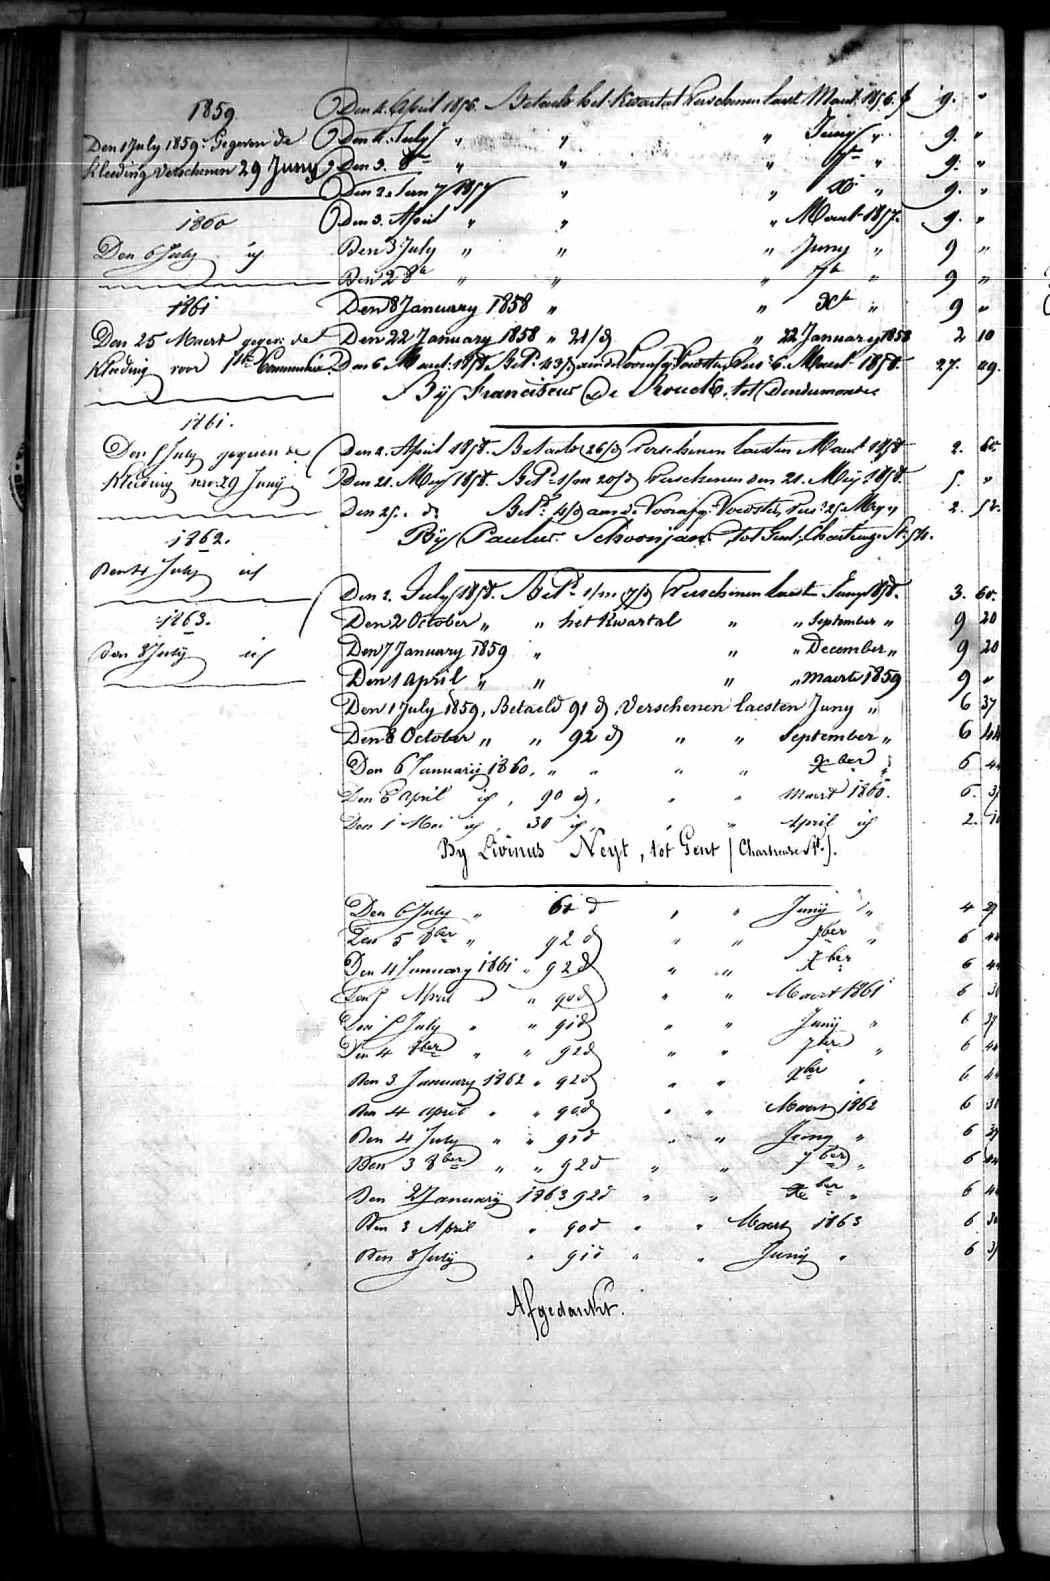 1859
Den 1 July 1859. Gegeven de
kleeding verschenen 29 Juny
1860
Den 6 July id
1861
Den 25 Maert gegeven de
kleeding voor 1ste Communie
1861.
Den 5 July gegeven de
kleeding verss. 29 Junij
1862.
Den 4 July id
1863.
Den 8 July id
Den 4. April 1856. Betaelt het kwartal verschenen laest Maert 1856. f 9. "
Den 4. July " " " Juny " 9. "
Den 3. 8re " " " 7re " 9. "
Den 2. Jan 7 1857 " " Xr " 9. "
Den 3. April " " " Maert 1857. 9. "
Den 3 July " " " Juny " 9 "
Den 2 8re " " " 7re " 9 "
Den 8 January 1858 " " Xr " 9 "
Den 22 January 1858 " 21/d " 22 January 1858 2 10
Den 6 Maert 1858. Bet. 43/d aan de Voorafg. Voedster, Vers. 6. Maert 1858. 27. 49.
Bij Franciscus De Kouck, tot Dendermonde
Den 2. April 1858. Betaelt 26/d Verschenen laesten Maert 1858 2. 60.
Den 21. Mey 1858. Bet. 1/m 20/d Verschenen den 21. Mey 1858. 5. "
Den 25. d. Bet. 4/d aan de Voorafg. Voedster, Vers. 25 Mey " 2. 52.
Bij Paulus Schoonjans, tot Gent, Chartreuse St.
Den 2. July 1858. Bet. 1/m 7/d Verschenen laest Juny 1858. 3. 60.
Den 2 October " " het kwartal " " September " 9 20
Den 7 January 1859 " " " December " 9 20
Den 1 april " " " " maert 1859 9 "
Den 1 July 1859, Betaeld 91 d, verschenen laesten Juny " 6 37
Den 8 October " " 92 d " " September " 6 44
Den 6 Januarij 1860, " " " " Xber " 6 44
Den 6 april id, 90 d, " " maert 1860. 6. 37
Den 1 Mei id, 30 id, " " April id 2. 10
By Livinus Neyt, tot Gent (Chartreuse St.).
Den 6 July " 61 d " " Junij " 4 27
Den 5 8ber " 92 d " " 7ber " 6 44
Den 4 January 1861 " 92 d " " Xber 6 44
Den 5 April d " 90 d " " Maert 1861 6 30
Den 5 July " " 91 d " " Junij " 6 37
Den 4 8ber " " 92 d " " 7ber " 6 44
Den 3 January 1862 " 92 d " " Xber " 6 44
Den 4 april " " 90 d " " Maert 1862 6 30
Den 4 July " " 91 d " " Juny " 6 37
Den 3 8ber " " 92 d " " 7ber " 6 44
Den 2 Januarij 1863 92 d " " Xber " 6 44
Den 3 April " 90 d " " Maert 1863 6 30
Den 8 July " 91 d " " Junij " 6 37
Afgedankt.